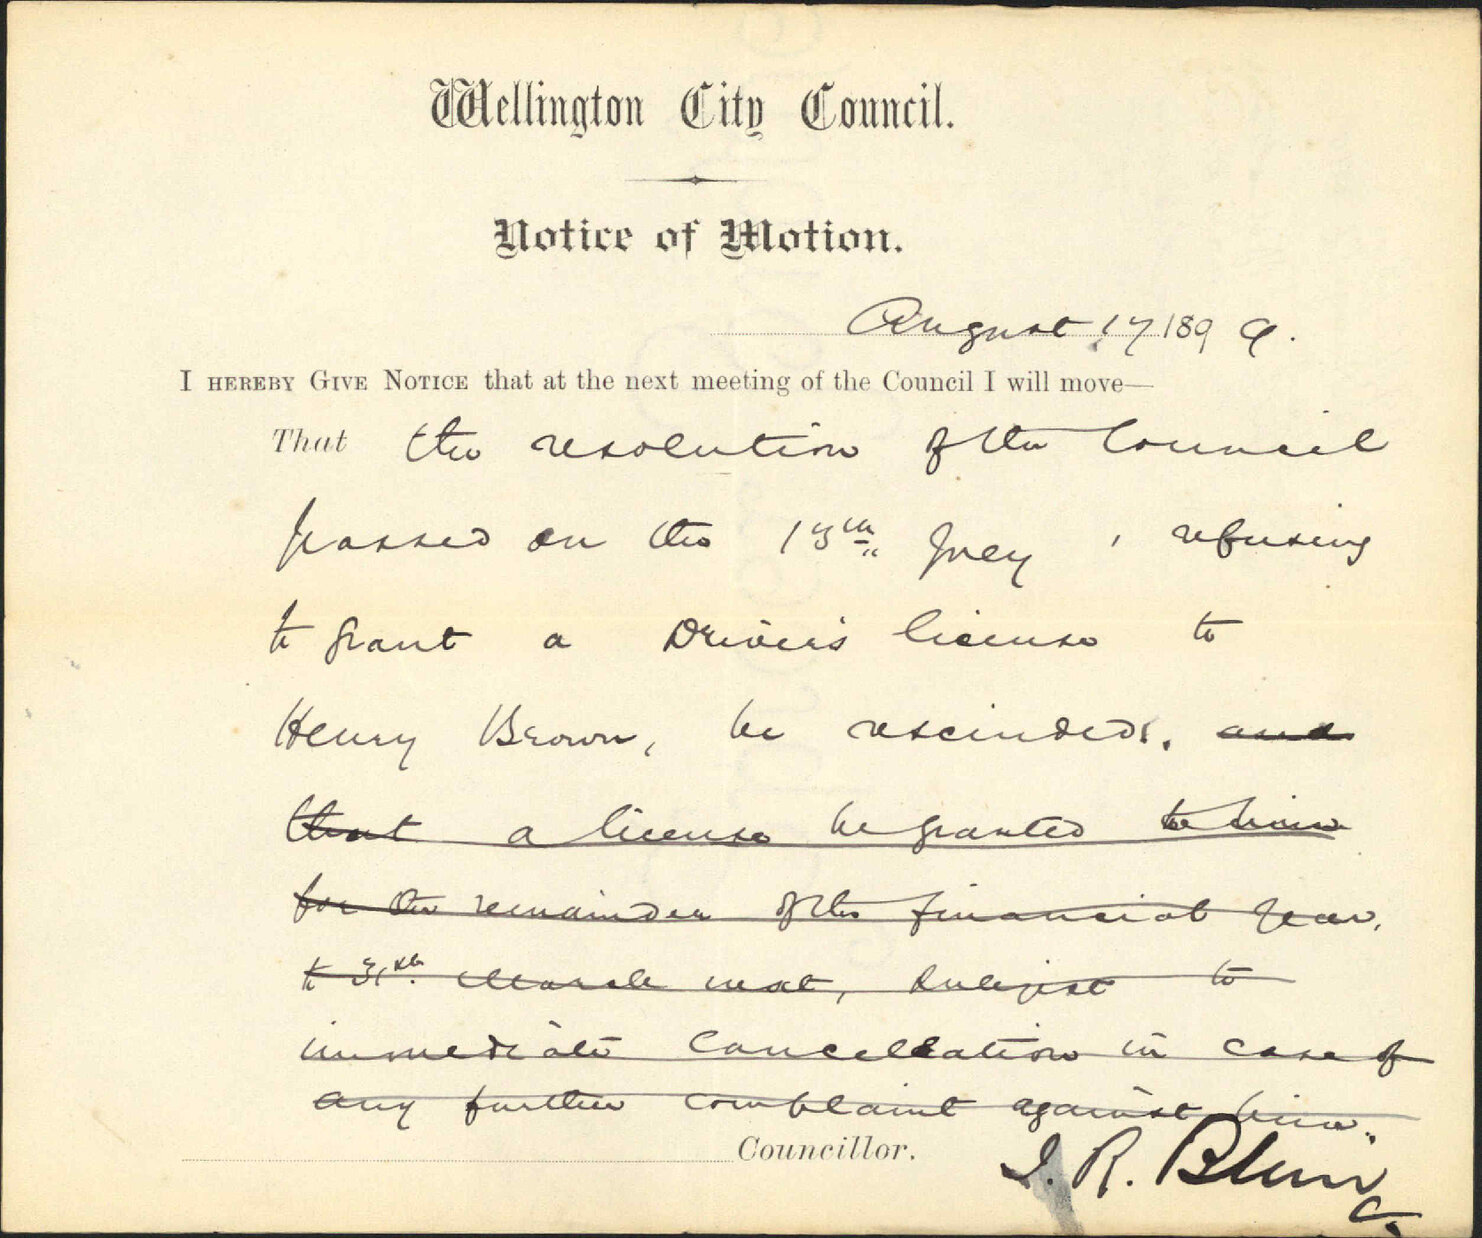 Wellington City Council.
Notice of Motion.
August 17 1899.
I HEREBY GIVE NOTICE that at the next meeting of the Council I will move—
That the resolution of the Council
passed on the 13th July, refusing
to grant a Driver's license to
Henry Brown, be rescinded. and
that a license be granted to him
for the remainder of the financial year,
to 31st March next, subject to
immediate cancellation in case of
any further complaint against him.
Councillor. J. R. Blair